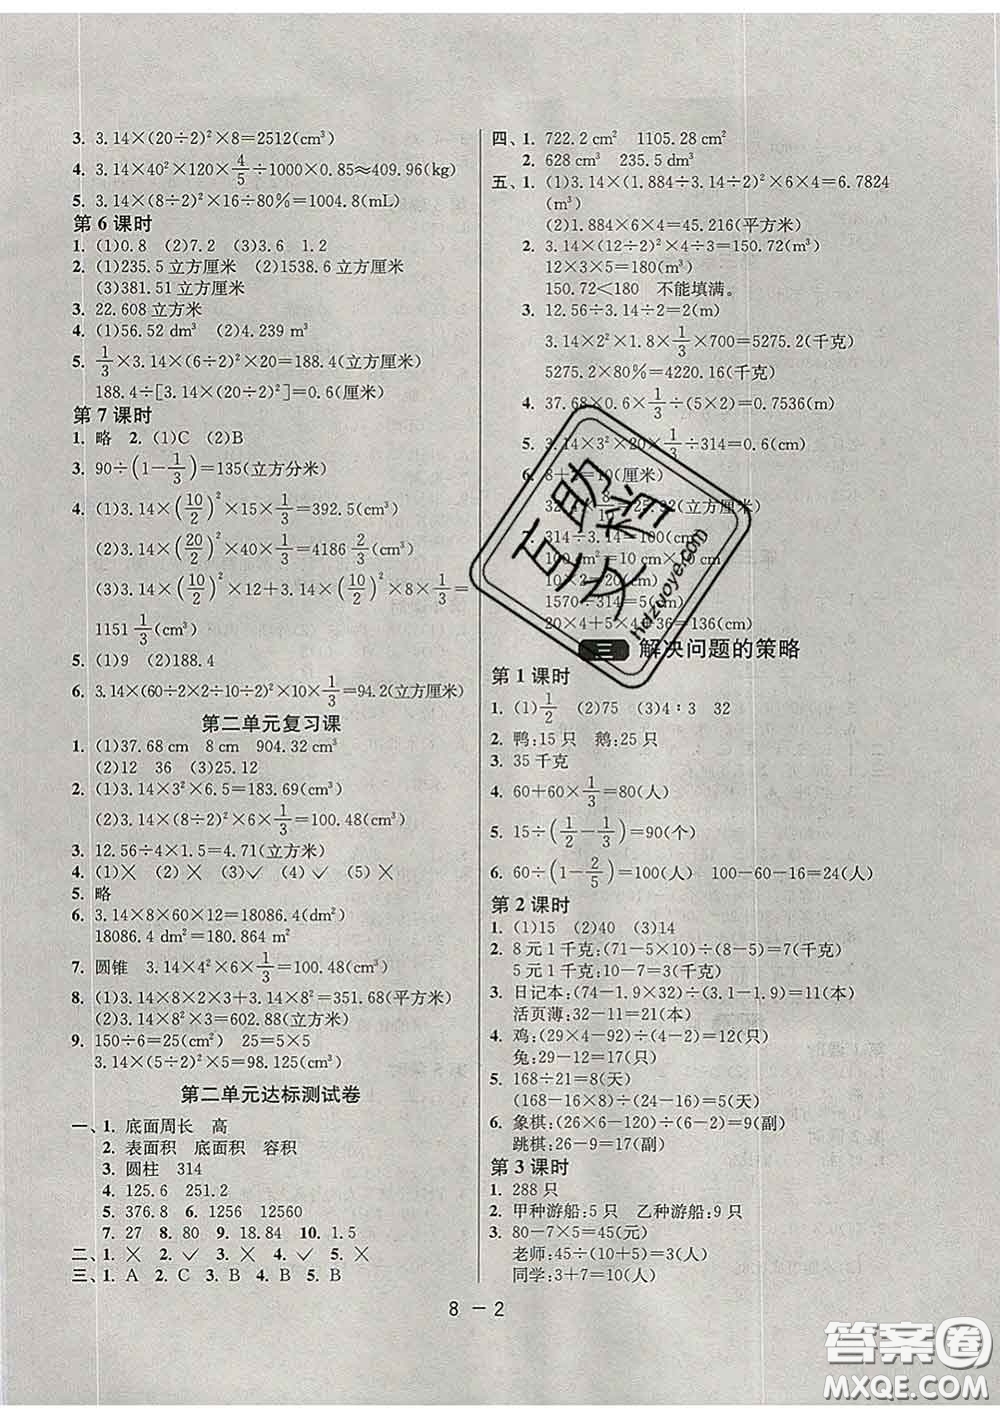 3. 3.14×(20÷2)²×8=2512(cm³)
4. 3.14×40²×120×4/5÷1000×0.85≈409.96(kg)
5. 3.14×(8÷2)²×16÷80%=1004.8(mL)
第 6 课时
1. (1)0.8 (2)7.2 (3)3.6 1.2
2. (1)235.5立方厘米 (2)1538.6立方厘米
(3)381.51立方厘米
3. 22.608立方米
4. (1)56.52 dm³ (2)4.239 m³
5. 1/3×3.14×(6÷2)²×20=188.4(立方厘米)
188.4÷[3.14×(20÷2)²]=0.6(厘米)
第 7 课时
1. 略 2. (1)C (2)B
3. 90÷(1−1/3)=135(立方分米)
4. (1)3.14×(10/2)²×15×1/3=392.5(cm³)
(2)3.14×(20/2)²×40×1/3=4186 2/3(cm³)
(3)3.14×(10/2)²×12+3.14×(10/2)²×8×1/3=
1151 1/3(cm³)
5. (1)9 (2)188.4
6. 3.14×(60÷2×2÷10÷2)²×10×1/3=94.2(立方厘米)
第二单元复习课
1. (1)37.68 cm 8 cm 904.32 cm³
(2)12 36 (3)25.12
2. (1)3.14×3²×6.5=183.69(cm³)
(2)3.14×(8÷2)²×6×1/3=100.48(cm³)
3. 12.56÷4×1.5=4.71(立方米)
4. (1)× (2)× (3)✓ (4)✓ (5)×
5. 略
6. 3.14×8×60×12=18086.4(dm²)
18086.4 dm²=180.864 m²
7. 圆锥 3.14×4²×6×1/3=100.48(cm³)
8. (1)3.14×8×2×3+3.14×8²=351.68(平方米)
(2)3.14×8²×3=602.88(立方米)
9. 150÷6=25(cm²) 25=5×5
3.14×(5÷2)²×5=98.125(cm³)
第二单元达标测试卷
一、1. 底面周长 高
2. 表面积 底面积 容积
3. 圆柱 314
4. 125.6 251.2
5. 376.8 6. 1256 12560
7. 27 8. 80 9. 18.84 10. 1.5
二、1. × 2. ✓ 3. × 4. ✓ 5. ×
三、1. A 2. C 3. B 4. B 5. B
四、1. 722.2 cm² 1105.28 cm²
2. 628 cm³ 235.5 dm³
五、1. (1)3.14×(1.884÷3.14÷2)²×6×4=6.7824
(m³)
(2)1.884×6×4=45.216(平方米)
2. 3.14×(12÷2)²×4÷3=150.72(m³)
12×3×5=180(m³)
150.72<180 不能填满。
3. 12.56÷3.14÷2=2(m)
3.14×2²×1.8×1/3×700=5275.2(千克)
5275.2×80%=4220.16(千克)
4. 37.68×0.6×1/3÷(5×2)=0.7536(m)
5. 3.14×3²×20×1/3÷314=0.6(cm)
6. 8+2=10(厘米)
314÷3.14=100(cm)
100 cm²=10 cm×10 cm
10×2=20(cm)
1570÷314=5(cm)
20×4+5×4+36=136(cm)
三 解决问题的策略
第 1 课时
1. (1)1/2 (2)75 (3)4∶3 32
2. 鸭:15 只 鹅:25 只
3. 35千克
4. 60+60×1/3=80(人)
5. 15÷(1/2−1/3)=90(个)
6. 60÷(1−2/5)=100(人) 100−60−16=24(人)
第 2 课时
1. (1)15 (2)40 (3)14
2. 8元1千克:(71−5×10)÷(8−5)=7(千克)
5元1千克:10−7=3(千克)
3. 日记本:(74−1.9×32)÷(3.1−1.9)=11(本)
活页薄:32−11=21(本)
4. 鸡:(29×4−92)÷(4−2)=12(只)
兔:29−12=17(只)
5. 168÷21=8(天)
(168−16×8)÷(24−16)=5(天)
6. 象棋:(26×6−120)÷(6−2)=9(副)
跳棋:26−9=17(副)
第 3 课时
1. 288 只
2. 甲种游船:5 只 乙种游船:9 只
3. 80−7×5=45(元)
老师:45÷(10+5)=3(人)
同学:3+7=10(人)
8 − 2
互助文档
hdzuoye.com
答案圈
MXQE.COM